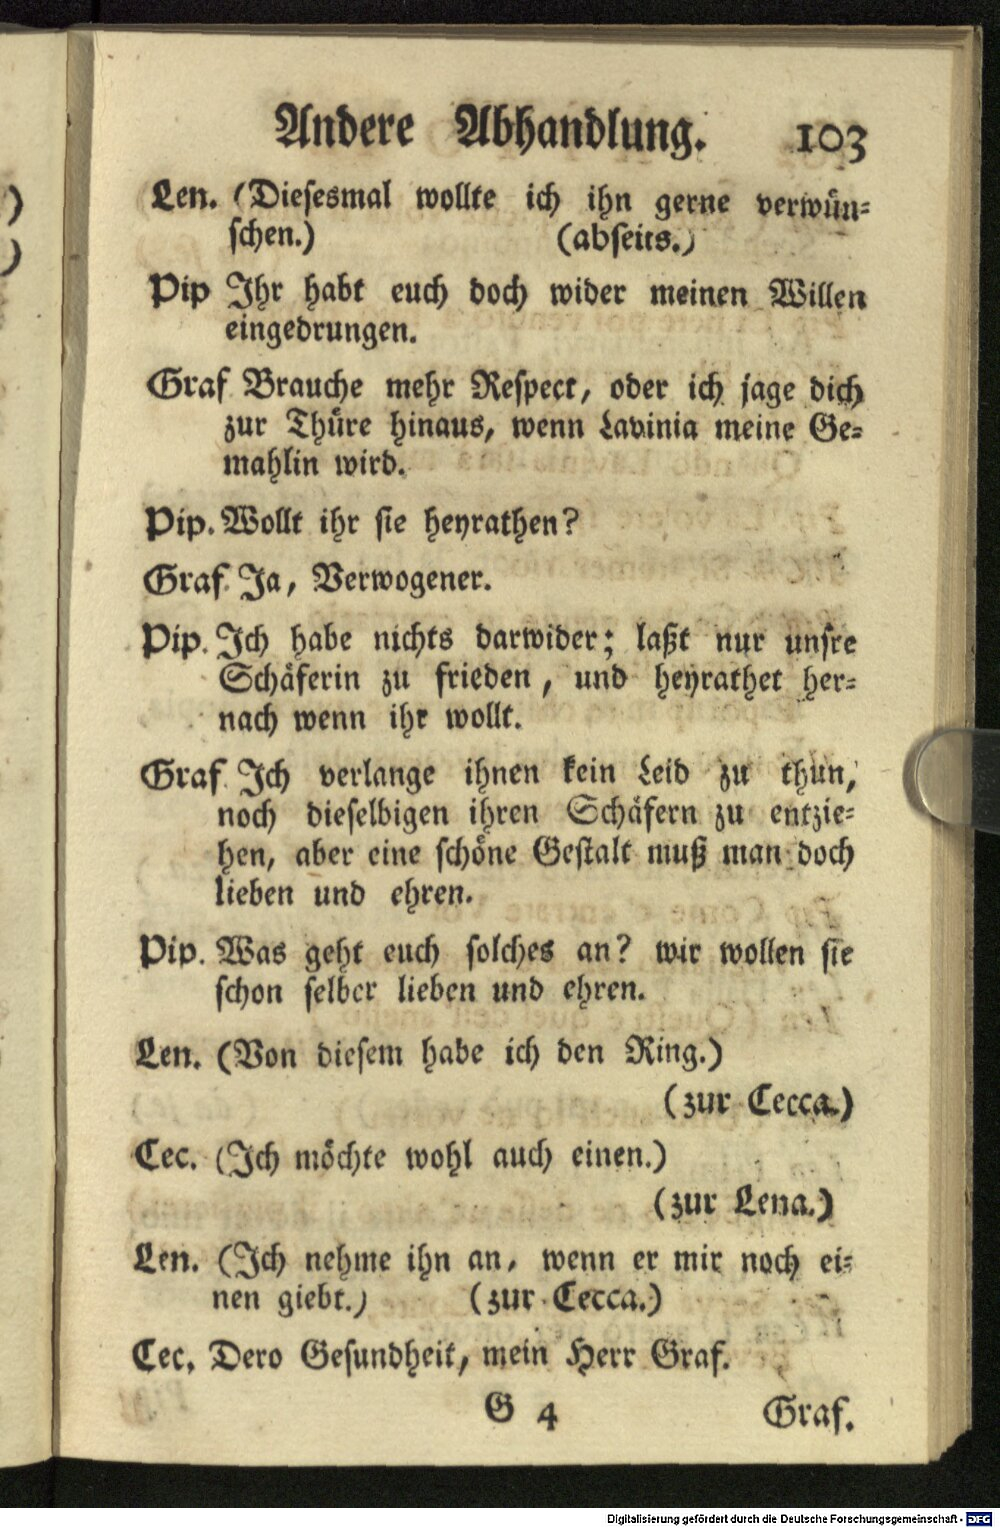 Andere Abhandlung. 103
Len. (Diesesmal wollte ich ihn gerne verwün-
schen.) (abseits.)
Pip Ihr habt euch doch wider meinen Willen
eingedrungen.
Graf Brauche mehr Respect, oder ich jage dich
zur Thüre hinaus, wenn Lavinia meine Ge-
mahlin wird.
Pip. Wollt ihr sie heyrathen?
Graf Ja, Verwogener.
Pip. Ich habe nichts darwider; laßt nur unsre
Schäferin zu frieden, und heyrathet her-
nach wenn ihr wollt.
Graf Ich verlange ihnen kein Leid zu thun,
noch dieselbigen ihren Schäfern zu entzie-
hen, aber eine schöne Gestalt muß man doch
lieben und ehren.
Pip. Was geht euch solches an? wir wollen sie
schon selber lieben und ehren.
Len. (Von diesem habe ich den Ring.)
(zur Cecca.)
Cec. (Ich möchte wohl auch einen.)
(zur Lena.)
Len. (Ich nehme ihn an, wenn er mir noch ei-
nen giebt.) (zur Cecca.)
Cec. Dero Gesundheit, mein Herr Graf.
G 4 Graf.
Digitalisierung gefördert durch die Deutsche Forschungsgemeinschaft - DFG